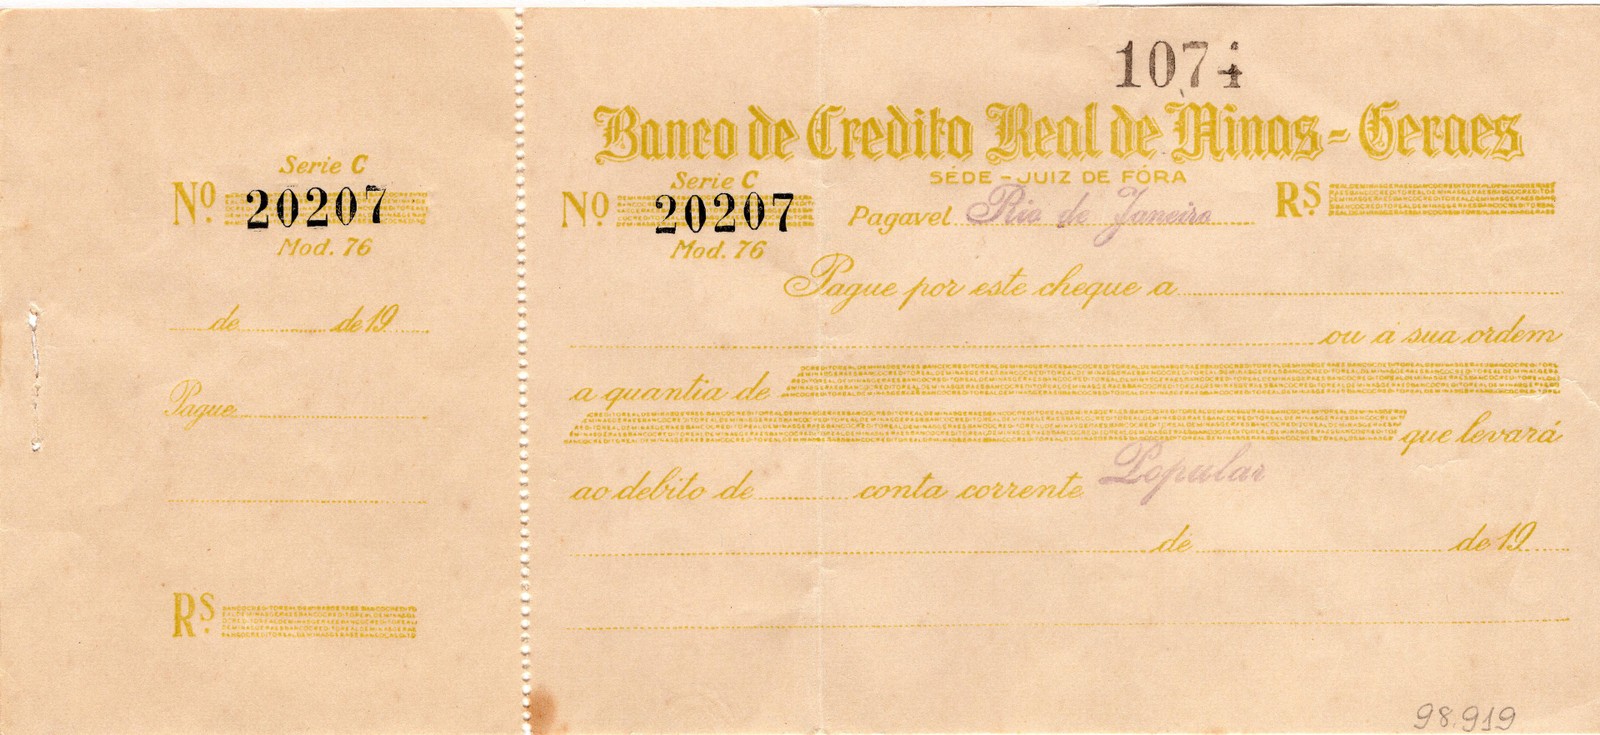 Serie C
Nº 20207
Mod. 76
de de 19
Pague
RS.
1074
Banco de Credito Real de Minas-Geraes
SÉDE - JUIZ DE FÓRA
Serie C
Nº 20207
Mod. 76
Pagavel Rio de Janeiro RS.
Pague por este cheque a
ou á sua ordem
a quantia de
que levará
ao debito de conta corrente Popular
de de 19
98.919